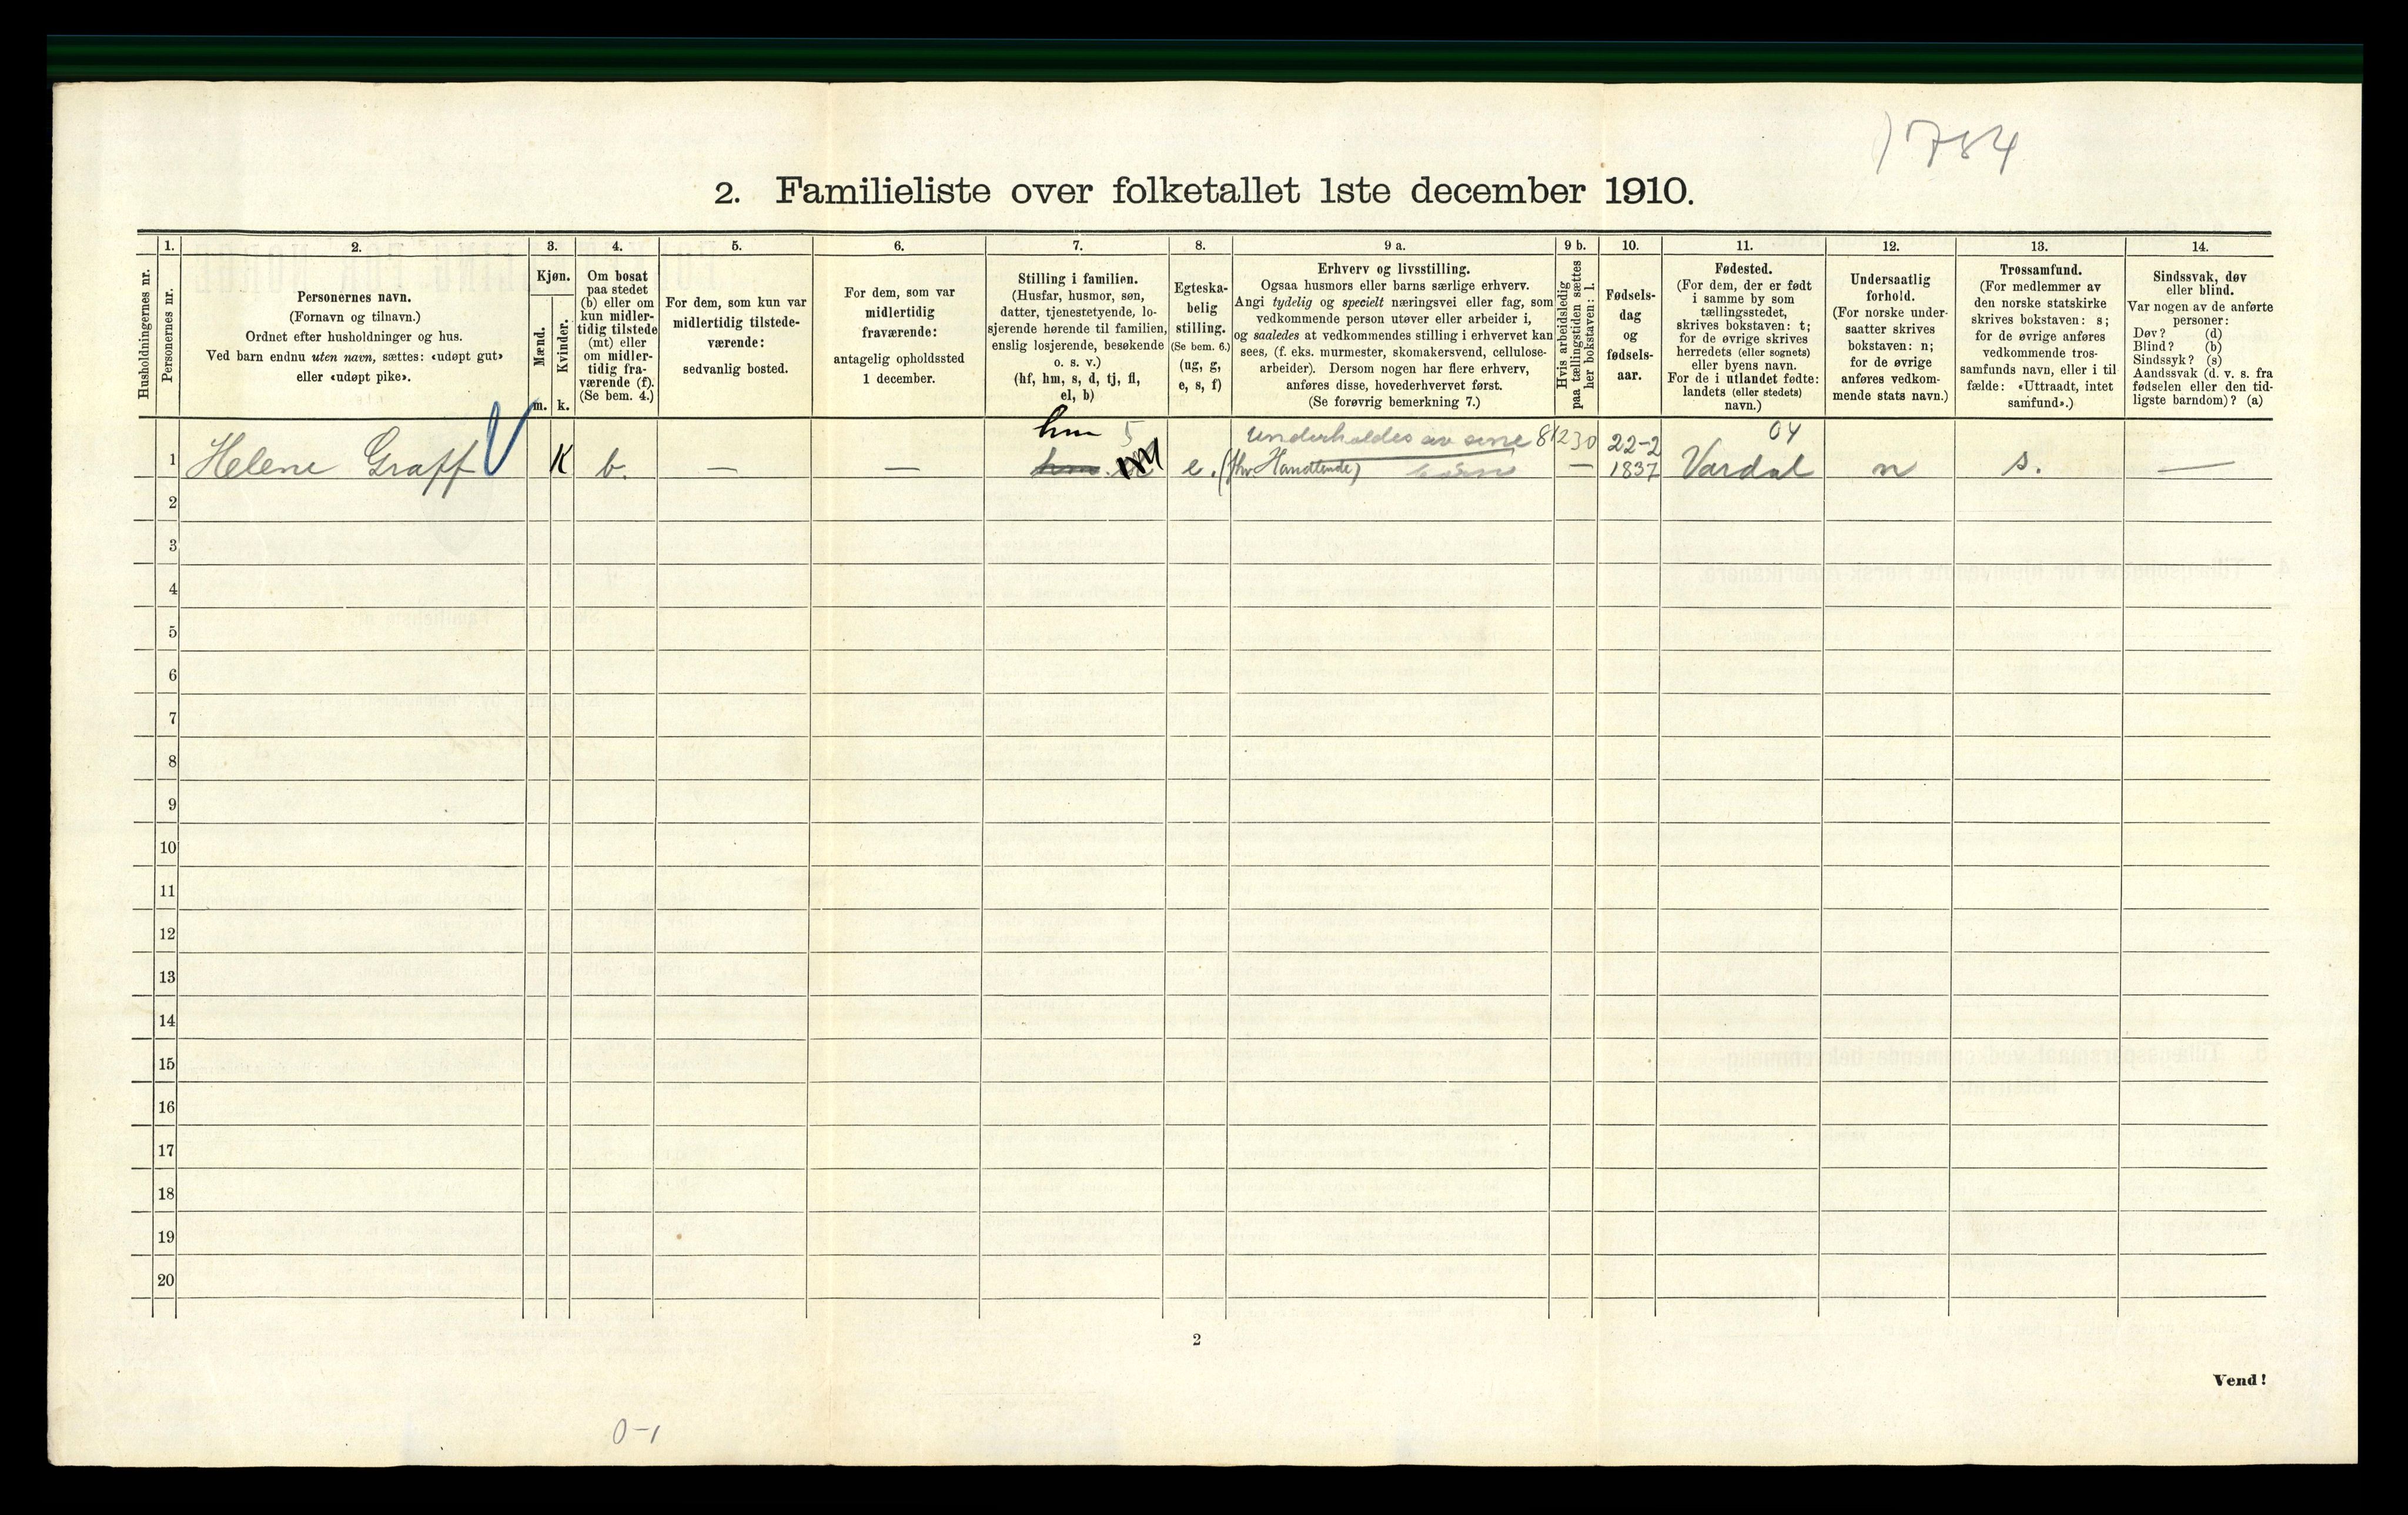 1784
2. Familieliste over folketallet 1ste december 1910.
Husholdningernes nr.
1.
Personernes nr.
2.
Personernes navn.
(Fornavn og tilnavn.)
Ordnet efter husholdninger og hus.
Ved barn endnu uten navn, sættes: «udøpt gut»
eller «udøpt pike».
3.
Kjøn.
Mænd.
m.
Kvinder.
k.
4.
Om bosat
paa stedet
(b) eller om
kun midler-
tidig tilstede
(mt) eller
om midler-
tidig fra-
værende (f).
(Se bem. 4.)
5.
For dem, som kun var
midlertidig tilstede-
værende:
sedvanlig bosted.
6.
For dem, som var
midlertidig
fraværende:
antagelig opholdssted
1 december.
7.
Stilling i familien.
(Husfar, husmor, søn,
datter, tjenestetyende, lo-
sjerende hørende til familien,
enslig losjerende, besøkende
o. s. v.)
(hf, hm, s, d, tj, fl,
el, b)
8.
Egteska-
belig
stilling.
(Se bem. 6.)
(ug, g,
e, s, f)
9 a.
Erhverv og livsstilling.
Ogsaa husmors eller barns særlige erhverv.
Angi tydelig og specielt næringsvei eller fag, som
vedkommende person utøver eller arbeider i,
og saaledes at vedkommendes stilling i erhvervet kan
sees, (f. eks. murmester, skomakersvend, cellulose-
arbeider). Dersom nogen har flere erhverv,
anføres disse, hovederhvervet først.
(Se forøvrig bemerkning 7.)
9 b.
Hvis arbeidsledig
paa tællingstiden sættes
her bokstaven: l.
10.
Fødsels-
dag
og
fødsels-
aar.
11.
Fødested.
(For dem, der er født
i samme by som
tællingsstedet,
skrives bokstaven: t;
for de øvrige skrives
herredets (eller sognets)
eller byens navn.
For de i utlandet fødte:
landets (eller stedets)
navn.)
12.
Undersaatlig
forhold.
(For norske under-
saatter skrives
bokstaven: n;
for de øvrige
anføres vedkom-
mende stats navn.)
13.
Trossamfund.
(For medlemmer av
den norske statskirke
skrives bokstaven: s;
for de øvrige anføres
vedkommende tros-
samfunds navn, eller i til
fælde: «Uttraadt, intet
samfund».)
14.
Sindssvak, døv
eller blind.
Var nogen av de anførte
personer:
Døv? (d)
Blind? (b)
Sindssyk? (s)
Aandssvak (d. v. s. fra
fødselen eller den tid-
ligste barndom)? (a)
hm 5 Underholdes av sine 81230 22-2 04
1 Helene Graff K b. — — hm e. (fhv. Handlende) børn — 1837 Vardal n s. —
2
3
4
5
6
7
8
9
10
11
12
13
14
15
16
17
18
19
20
2
Vend!
0-1